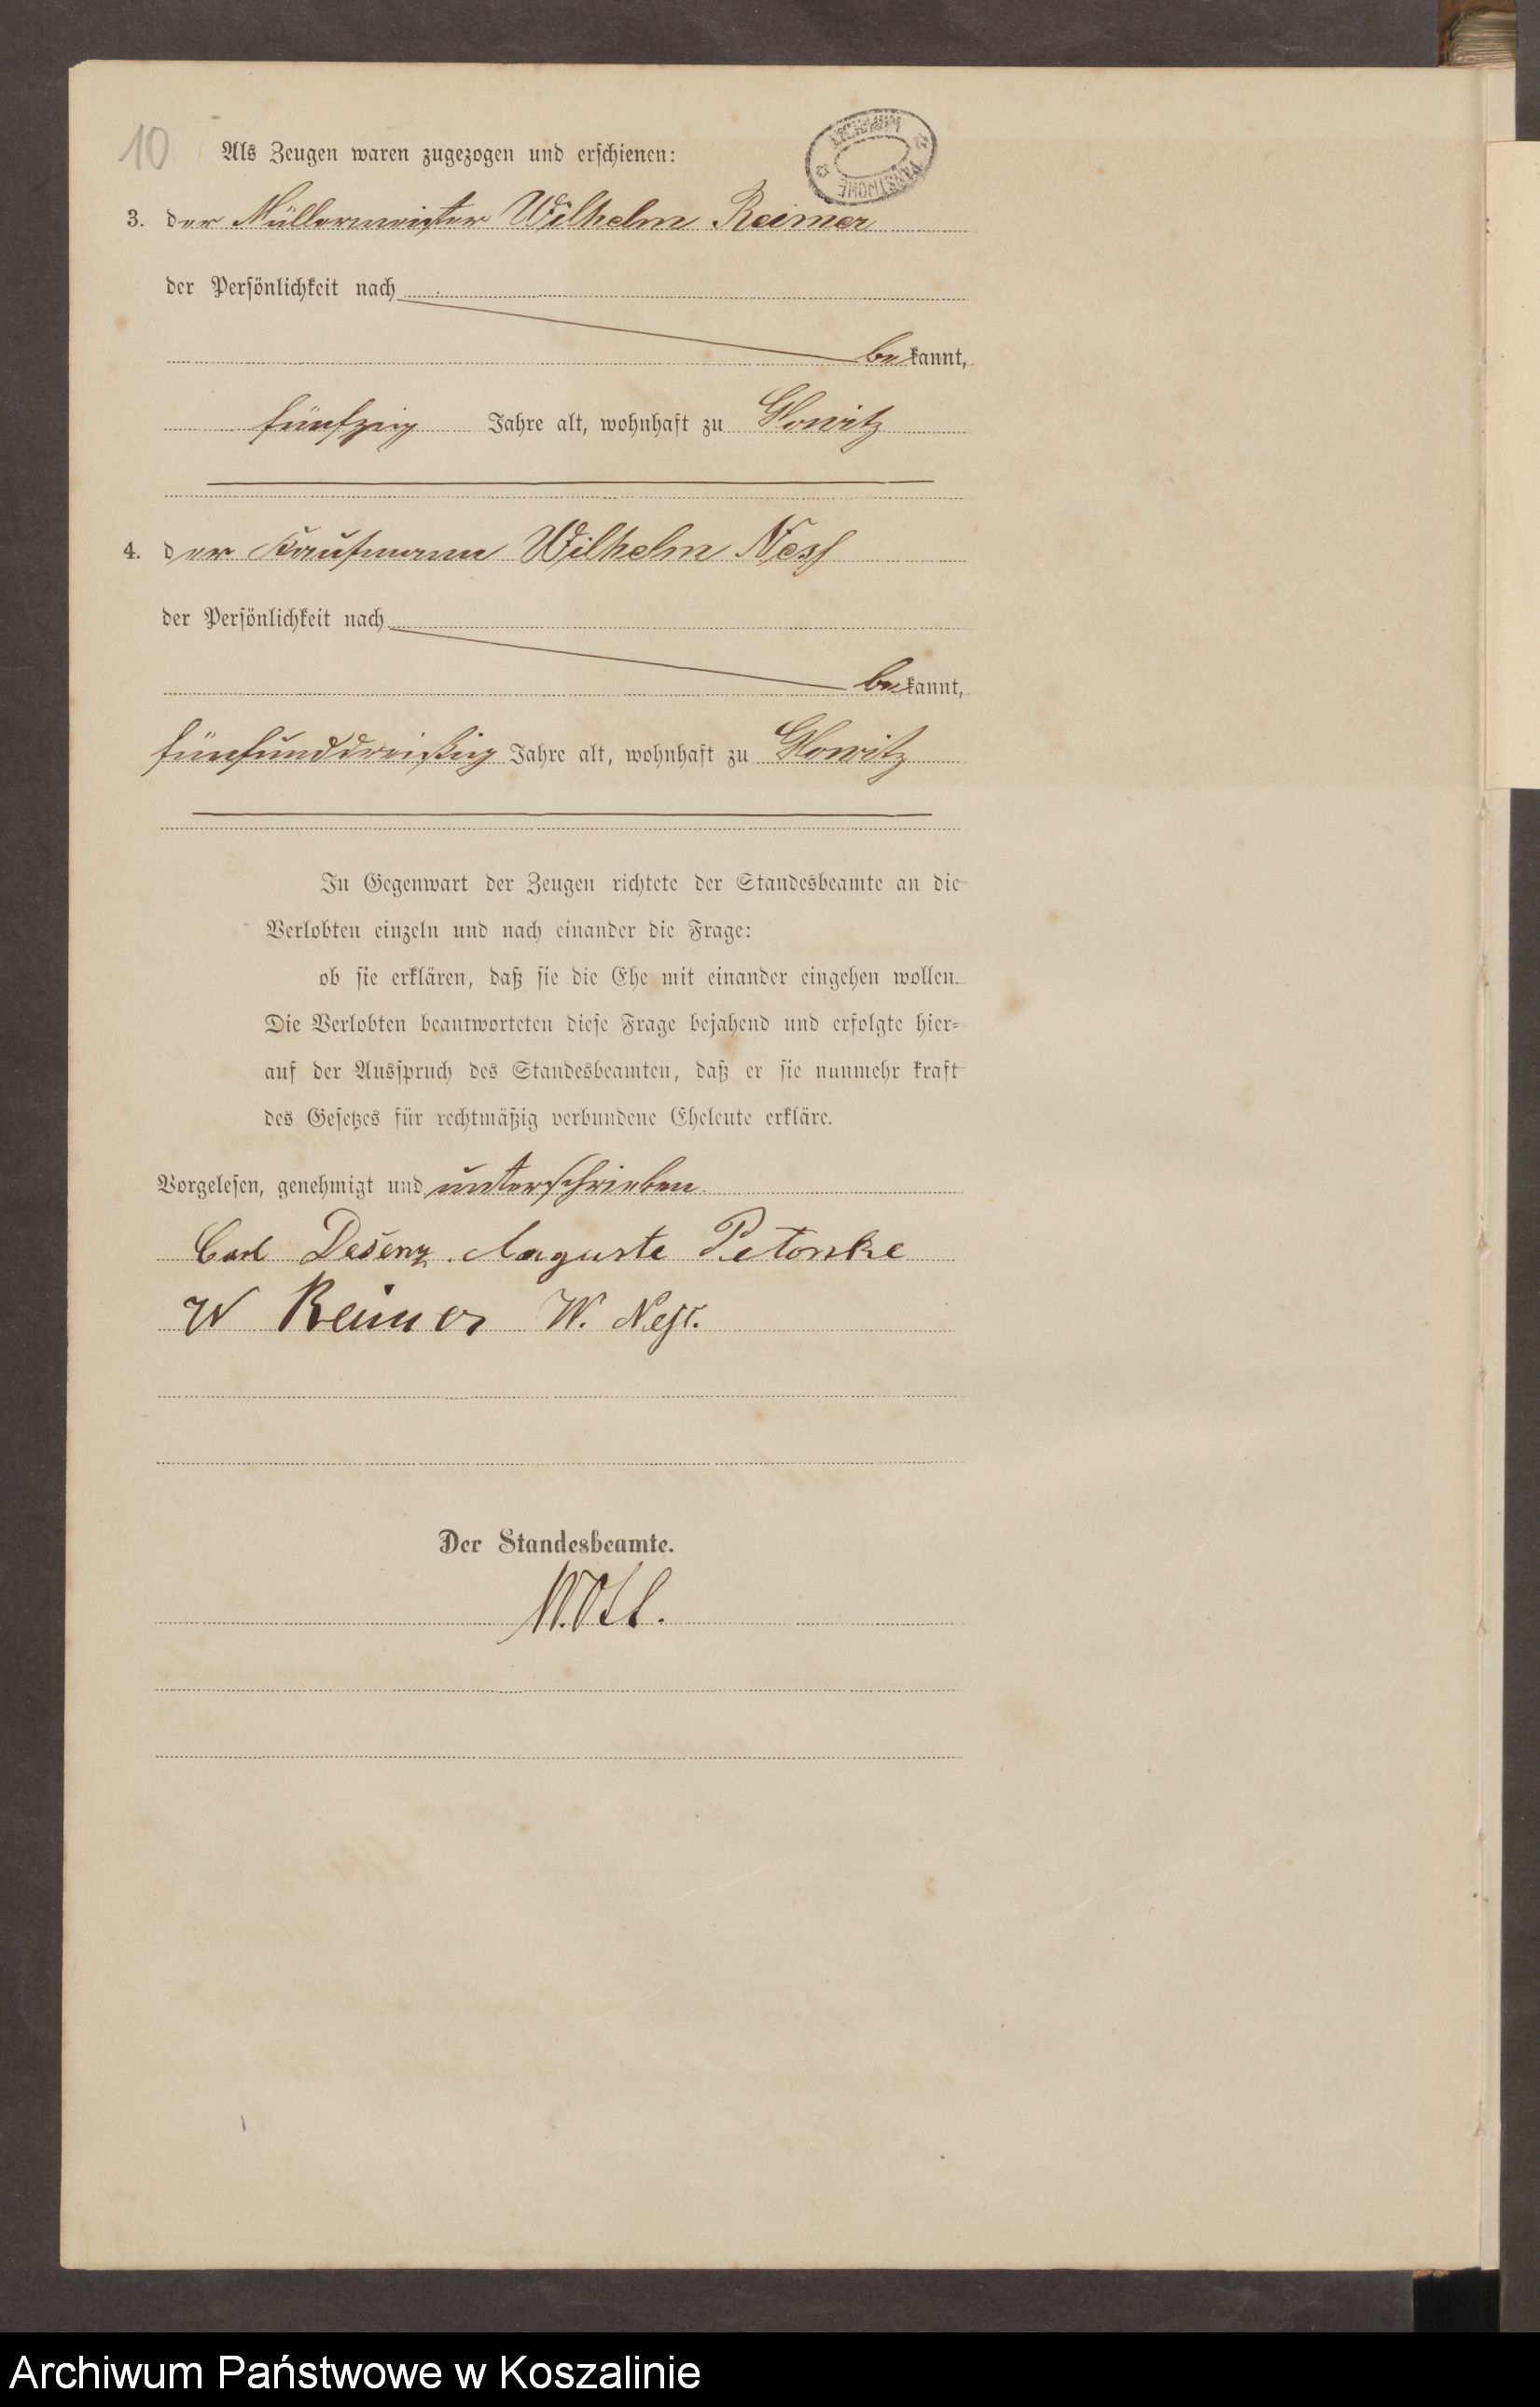 10
Als Zeugen waren zugezogen und erschienen:
ARCHIWUM PAŃSTWOWE
3. der Müllermeister Wilhelm Reimer
der Persönlichkeit nach
bekannt,
fünfzig Jahre alt, wohnhaft zu Glowitz
4. der Kaufmann Wilhelm Ness
der Persönlichkeit nach
bekannt,
fünfunddreißig Jahre alt, wohnhaft zu Glowitz
In Gegenwart der Zeugen richtete der Standesbeamte an die
Verlobten einzeln und nach einander die Frage:
ob sie erklären, daß sie die Ehe mit einander eingehen wollen.
Die Verlobten beantworteten diese Frage bejahend und erfolgte hier-
auf der Ausspruch des Standesbeamten, daß er sie nunmehr kraft
des Gesetzes für rechtmäßig verbundene Eheleute erkläre.
Vorgelesen, genehmigt und unterschrieben
Carl Auguste
W Reimer W. Ness.
Der Standesbeamte.
Archiwum Państwowe w Koszalinie